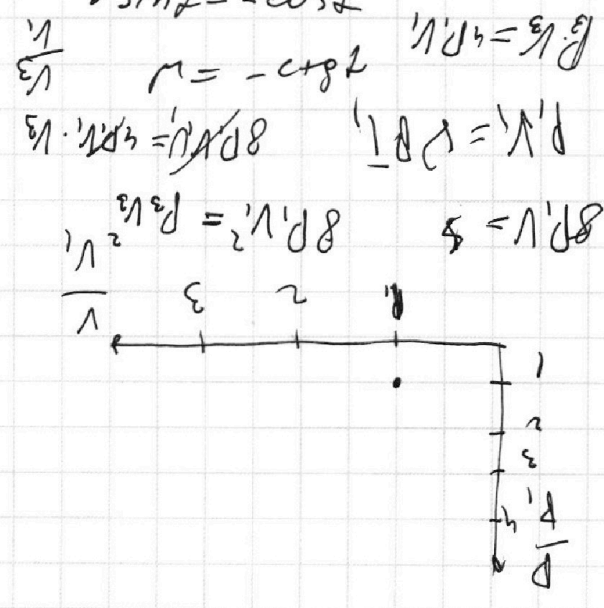 P
P₁
4
3
2
1
1 2 3 V
V₁
8P₁V = 8 8P₁V₁² = P₃V₃²
P₁V₁ = νRT₁ 8P₁V₁² = 4P₁V₁·V₃
P₃V₃ = 4P₁V₁ V₃
V₁